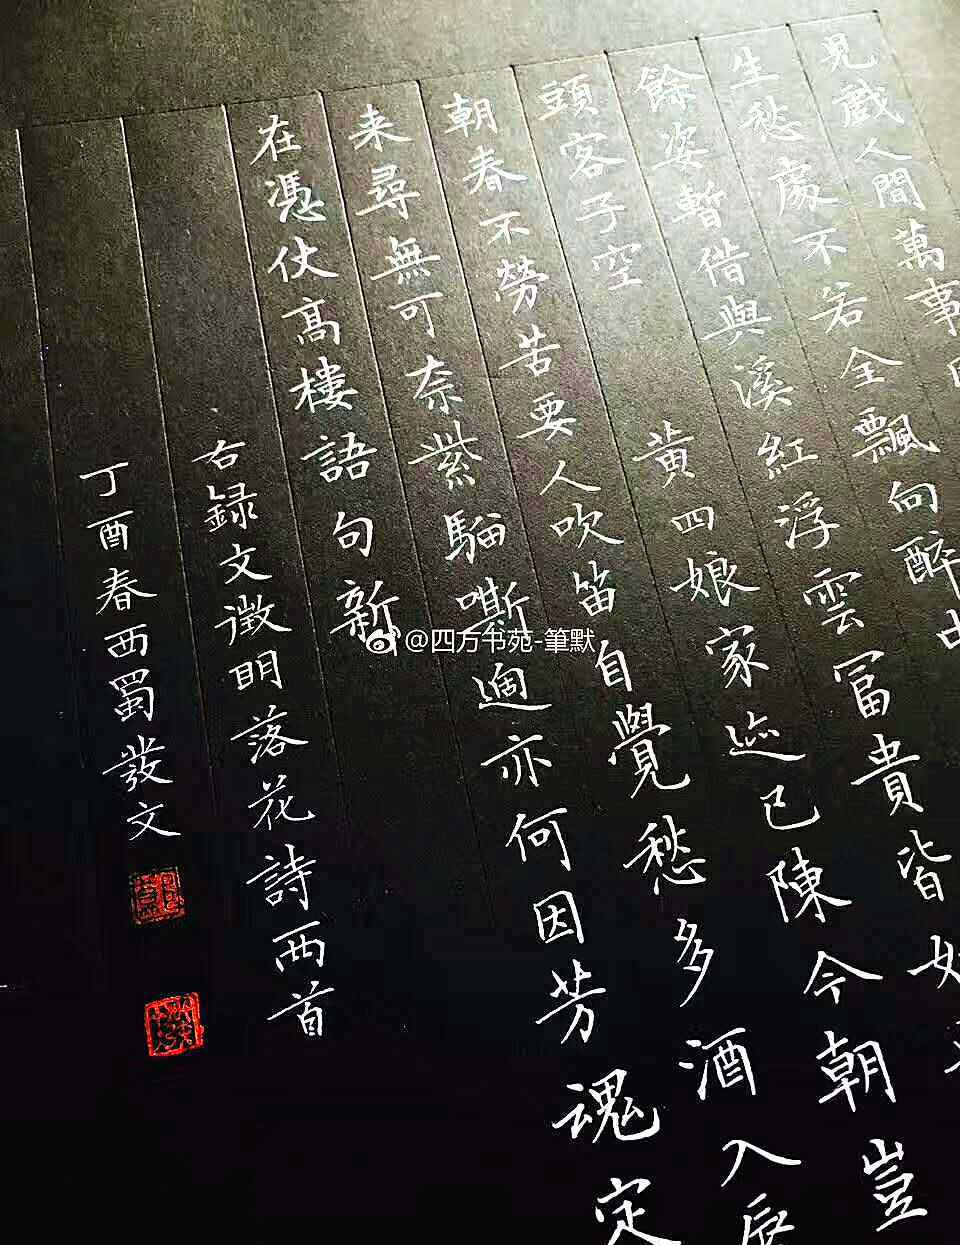 見戲人間萬事
生愁處不若全飄向醉
餘姿暫借與溪紅浮雲冨貴皆
頭客子空 黄四娘家迹已陳今朝豈
朝春不勞苦要人吹笛自覺愁多酒入
来尋無可奈紫騮嘶過亦何因芳魂定
在憑仗高樓語句新
右録文徵明落花詩两首
丁酉春西蜀發文
@四方书苑-筆默